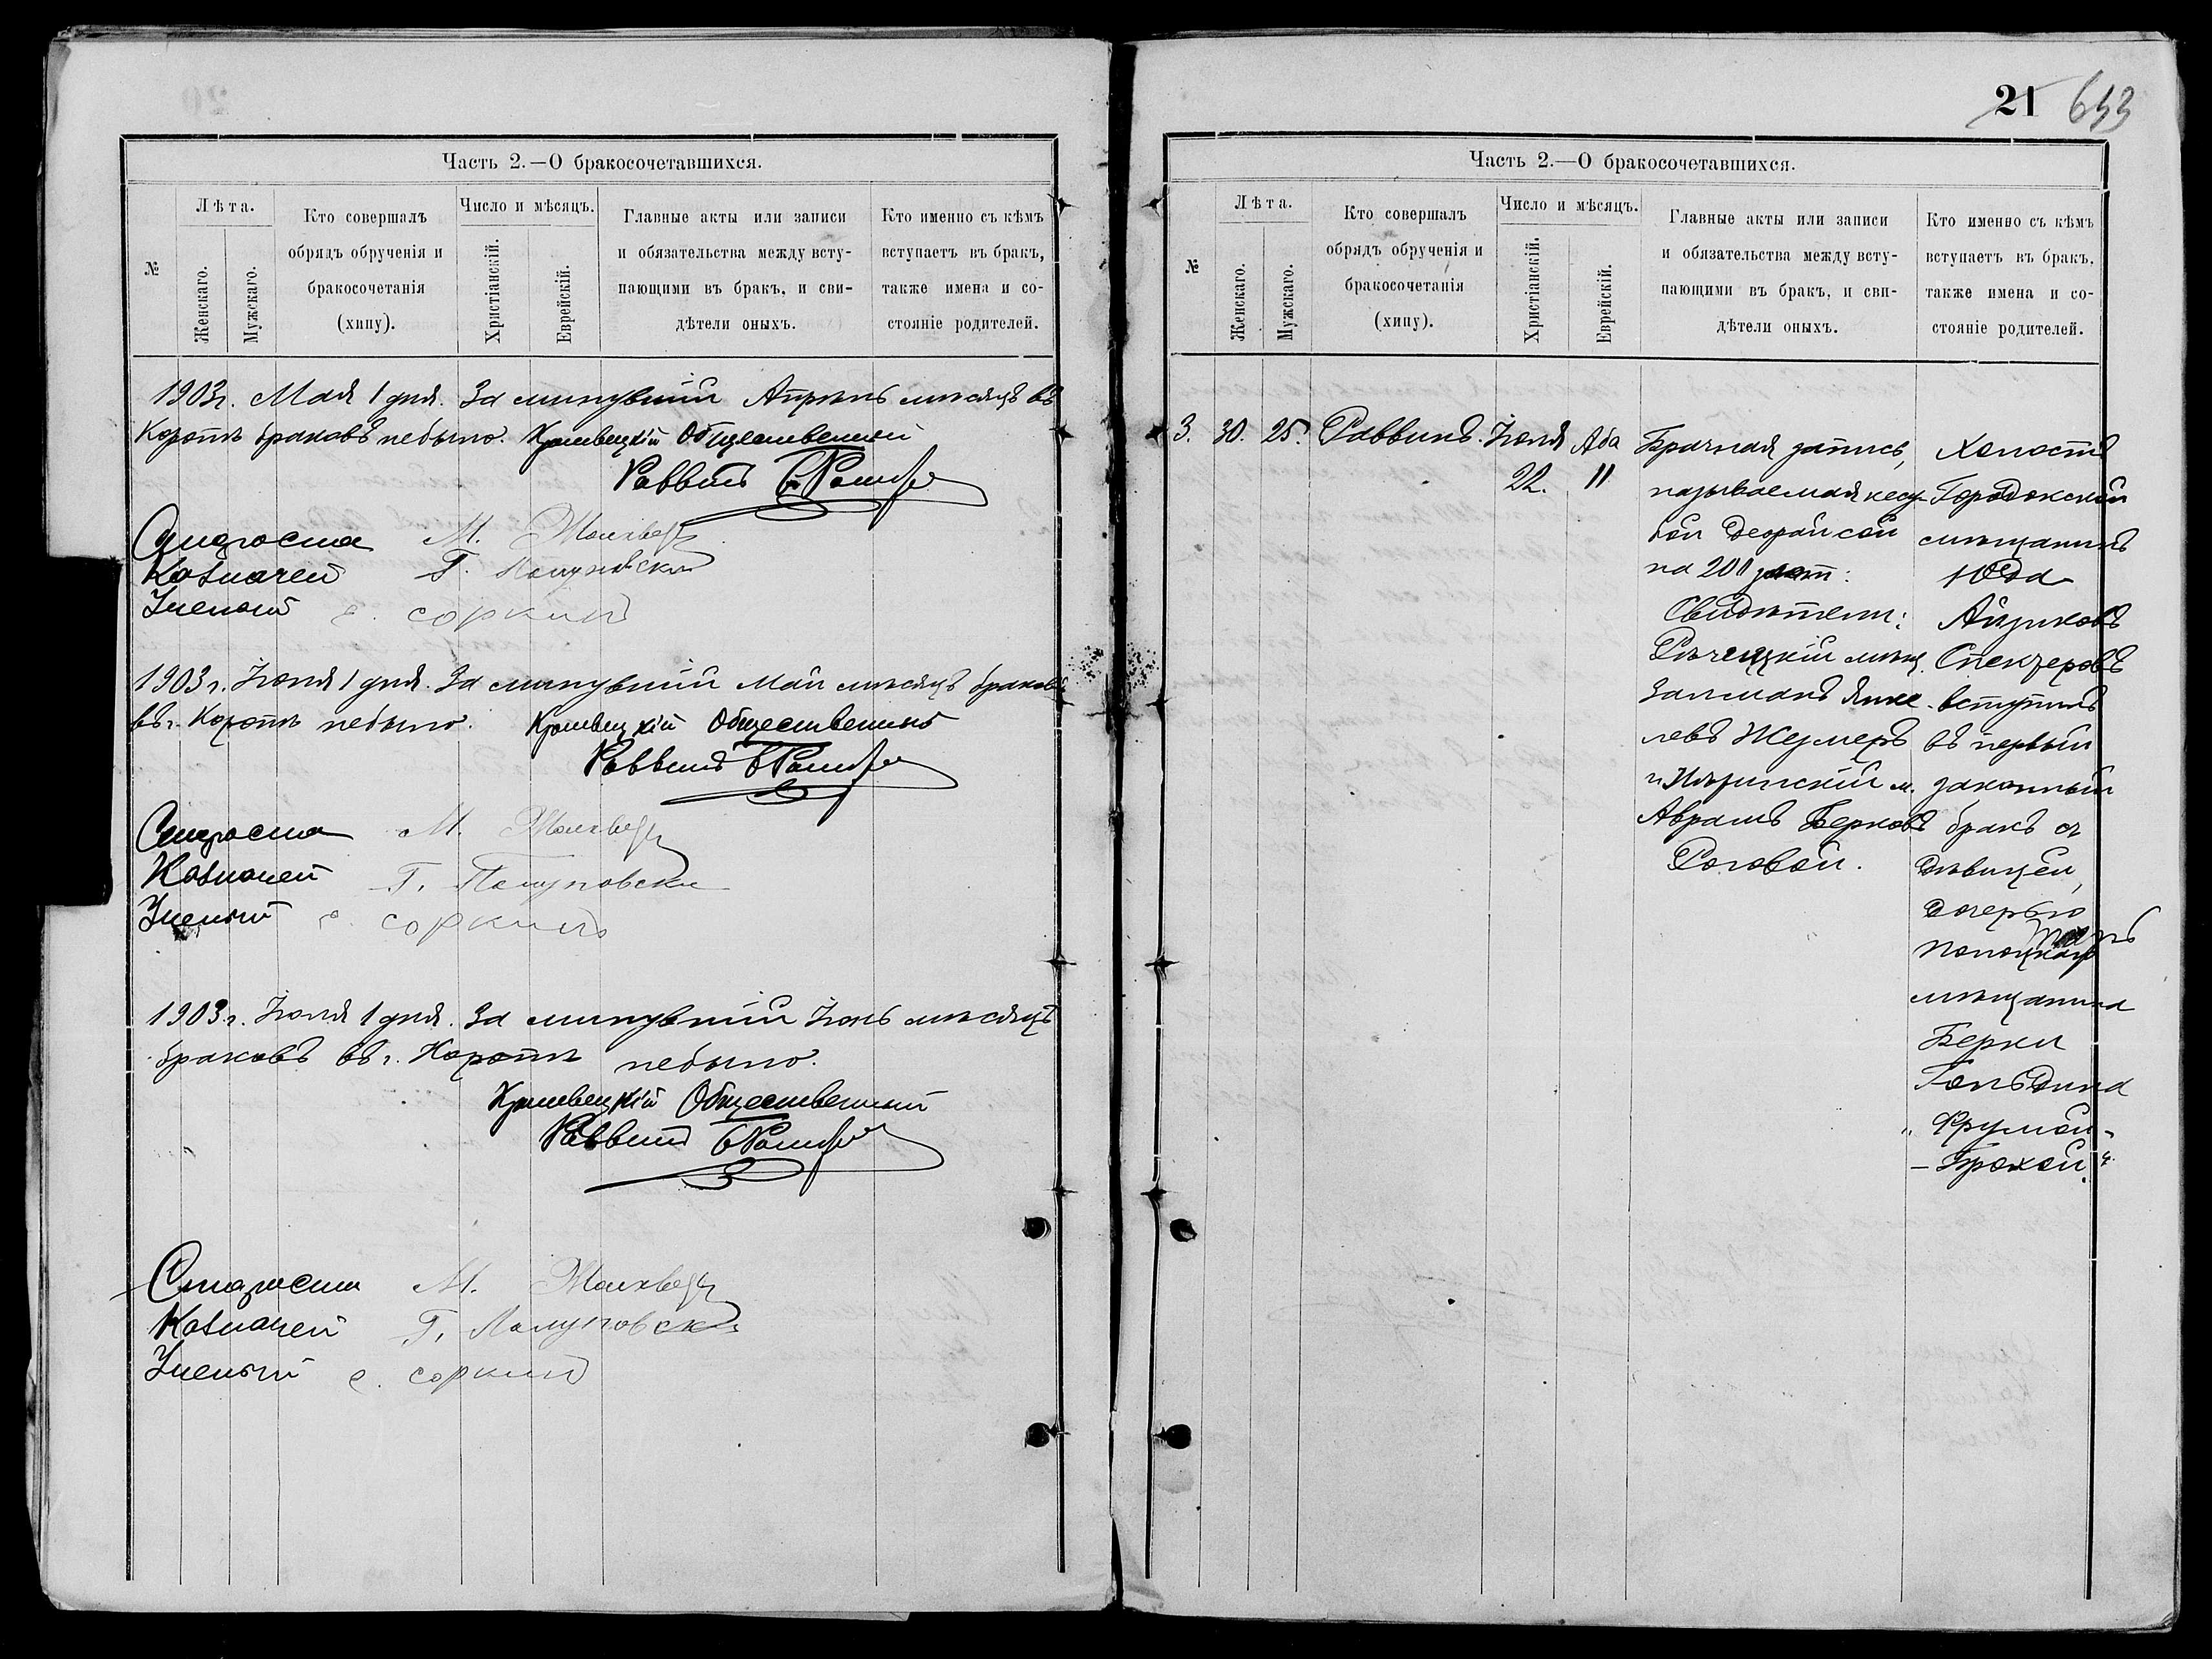 Часть 2.—О бракосочетавшихся.
№
Лѣта.
Женскаго.
Мужскаго.
Кто совершалъ
обрядъ обрученія и
бракосочетанія
(хипу).
Число и мѣсяцъ.
Христіанскій.
Еврейскій.
Главные акты или записи
и обязательства между всту-
пающими въ бракъ, и сви-
дѣтели оныхъ.
Кто именно съ кѣмъ
вступаетъ въ бракъ,
также имена и со-
стояніе родителей.
1903 г. Мая 1 дня. За минувшій Апрѣль мѣсяцъ въ
Коропѣ браковъ небыло. Кролевецкій Общественный
Раввинъ
Староста М.
Казначей Г.
Ученый с. соркинъ
1903 г. Іюня 1 дня. За минувшій Май мѣсяцъ браковъ
въ г. Коропѣ небыло. Кролевецкій Общественный
Раввинъ
Староста М.
Казначей Г.
Ученый с. соркинъ
1903 г. Іюля 1 дня. За минувшій Іюнь мѣсяцъ
браковъ въ г. Коропѣ небыло.
Кролевецкій Общественный
Раввинъ
Староста М.
Казначей Г.
Ученый с. соркинъ
21 653
Часть 2.—О бракосочетавшихся.
№
Лѣта.
Женскаго.
Мужскаго.
Кто совершалъ
обрядъ обрученія и
бракосочетанія
(хипу).
Число и мѣсяцъ.
Христіанскій.
Еврейскій.
Главные акты или записи
и обязательства между всту-
пающими въ бракъ, и сви-
дѣтели оныхъ.
Кто именно съ кѣмъ
вступаетъ въ бракъ,
также имена и со-
стояніе родителей.
3. 30. 25. Раввинъ. Іюля 22. Аба 11
Брачная запись,
называемая кесу-
бой Деорайсой
на 200 злот:
Свидѣтели:
Рѣчицкій мѣщ.
Залманъ Янке-
левъ Жермеръ
и м.
Аврамъ Берковъ
Роговой.
Холостъ
Городокскій
мѣщанинъ
Юда
Айзиковъ
Спекторовъ
вступилъ
въ первый
законный
бракъ съ
дѣвицей,
дочерью
мѣщанина
Берки
Гольдина
„Фрумой-
-Брохой“.